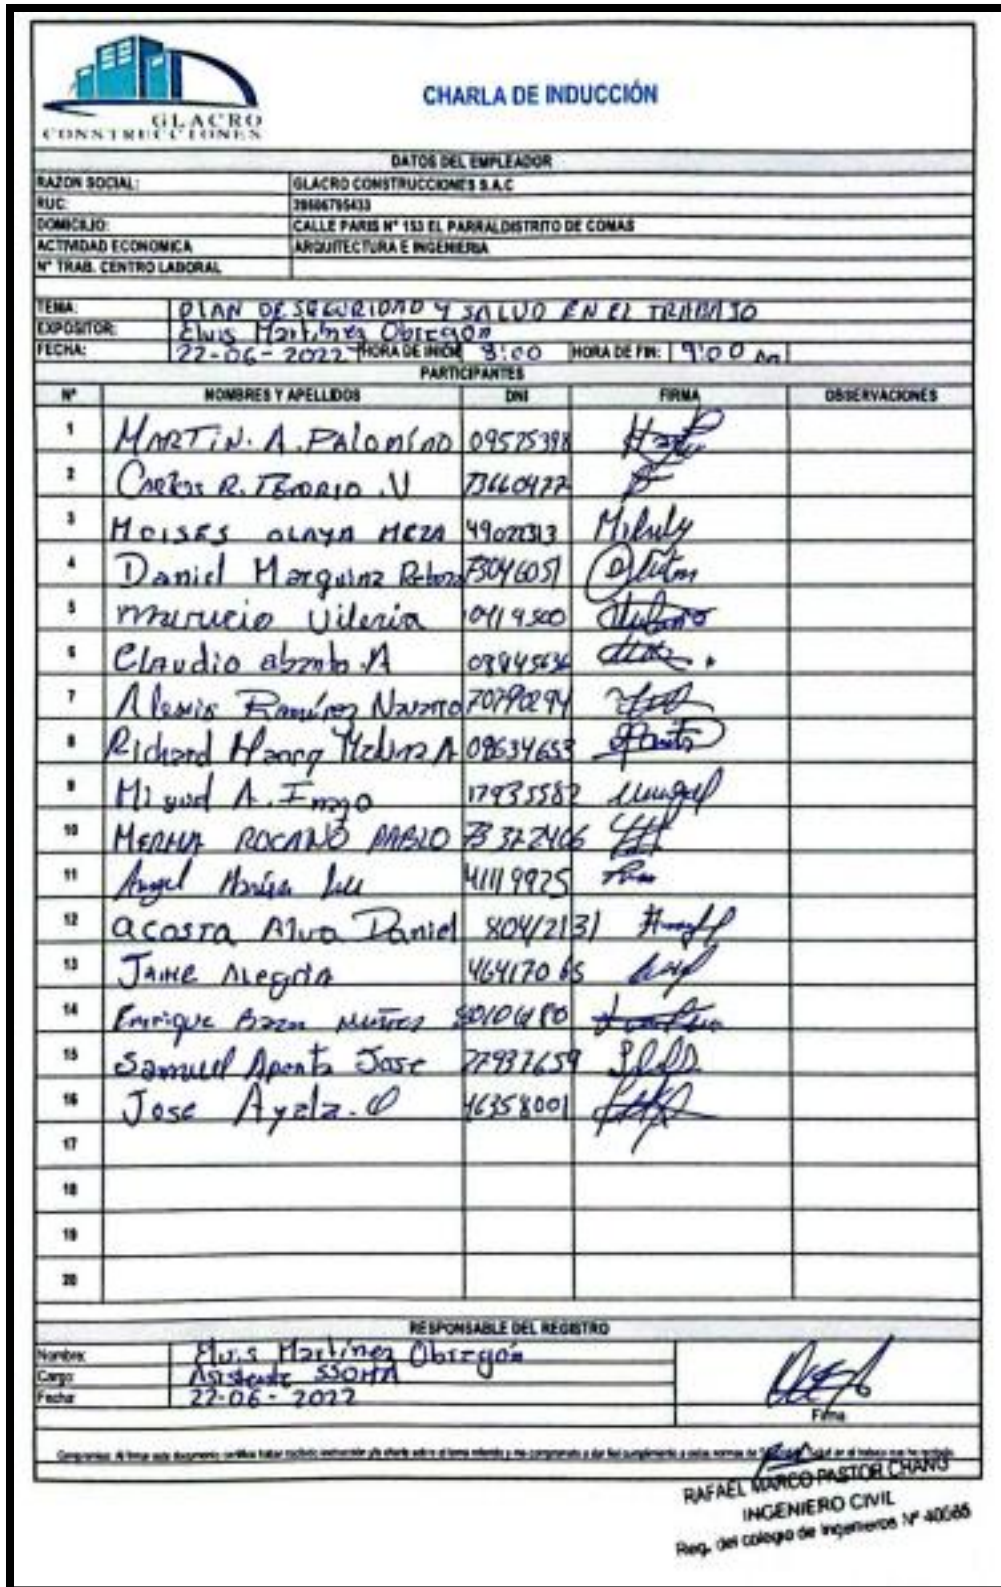 GLACRO
CONSTRUCCIONES
CHARLA DE INDUCCIÓN
DATOS DEL EMPLEADOR
RAZON SOCIAL: GLACRO CONSTRUCCIONES S.A.C
RUC:
DOMICILIO: CALLE PARIS N° 153 EL PARRALDISTRITO DE COMAS
ACTIVIDAD ECONOMICA ARQUITECTURA E INGENIERIA
N° TRAB. CENTRO LABORAL
TEMA: PLAN DE SEGURIDAD Y SALUD EN EL TRABAJO
EXPOSITOR: Elvis Martínez Obregón
FECHA: 22-06-2022 HORA DE INICIO 8:00 HORA DE FIN: 9:00 Am
PARTICIPANTES
N° NOMBRES Y APELLIDOS DNI FIRMA OBSERVACIONES
1 MARTIN. A. PALOMINO 09575398
2 Carlos R. TENORIO .V 73660477
3 MOISES OLAYA MEZA
4 Daniel Marguina 73046051
5 Mauricio Vileria
6 Claudio A
7 Alexis Ramírez Navarro 70790294
8 Richard Molina A 09634653
9 Miguel A. 17935582
10 ROCANO PABLO 73322406
11 Angel 41119925
12 acosta Alva Daniel 80412131
13 JAIME Alegria 46417065
14 Enrique Bazan Muñoz
15 Samuel Aponte Jose 77937659
16 Jose Ayala. O 46358001
17
18
19
20
RESPONSABLE DEL REGISTRO
Nombre: Elvis Martínez Obregón
Cargo: Asistente SSOMA
Fecha: 22-06-2022
Firma
RAFAEL MARCO PASTOR CHANG
INGENIERO CIVIL
Reg. del colegio de Ingenieros N°